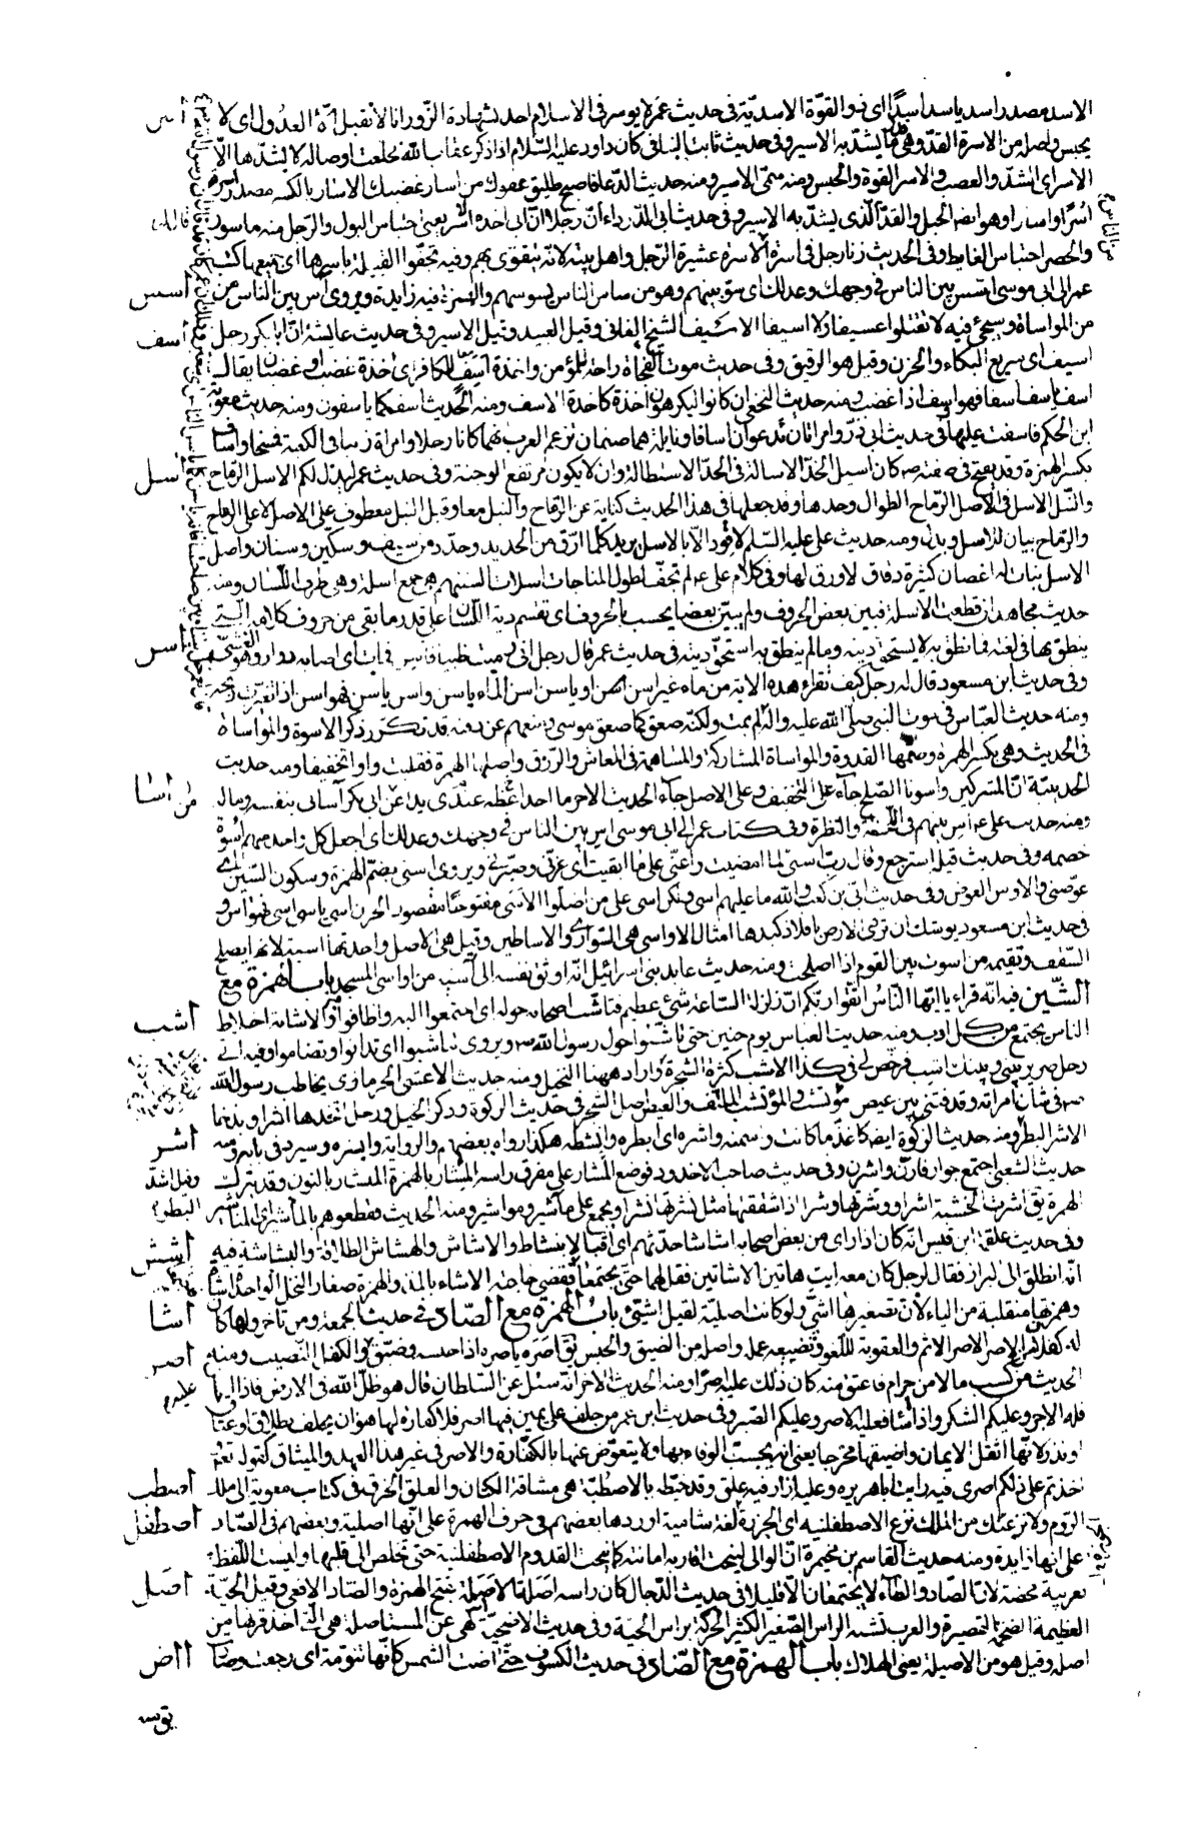 الاسد مصدر اسد ياسد اسدا اى ذو القوّة الاسديّة فى حديث عمر لا يوسر فى الاسلام احد بشهادة الزّور انا لا نقبل الّا العدُول اى لا
يحبس واصله من الاسرة القدّ وهى ما يشدّ به الاسير وفى حديث ثابت البنانى كان داود عليه السّلام اذا ذكر عقاب الله تخلعت اوصاله لا يشدّها الّا
الاسر اى الشدّ والعصب والاسر القوة والحبس ومنه سمّى الاسير ومنه حديث الدّعا فاصبح طليق عفوك من اسار غضبك الاسار بالكسر مصدر اسره
اسرًا واسارا وهو ايضا الحبل والقدّ الّذى يشدّ به الاسير وفى حديث ابى الدّرداء انّ رجلا قال انّ ابى اخذه الاسر يعنى احتباس البول والرّجل منه ماسور
والحصر احتباس الغايط وفى الحديث زنا رجل فى اسرة الاسرة عشيرة الرّجل واهل بيته لانّه يتقوى بهم وفيه تجفوا القبيلة باسرها اى جميعها كتب
عمر الى ابى موسى اسس بين الناس فى وجهك وعدلك اى سوّ بينهم وهو من ساس الناس يسوسهم والهمزة فيه زايدة ويروى آس بين الناس من
من المواساة وسيجئ فيه لا تقتلوا عسيفا ولا اسيفا الاسيف الشيخ الفانى وقيل العبد وقيل الاسير وفى حديث عايشة انّ ابا بكر رجل
اسيف اى سريع البكاء والحزن وقيل هو الرقيق وفى حديث موت الفجأة راحة للمؤمن واخذة اسف للكافر اى اخذة غضب او غضبان يقال
اسف ياسف اسفا فهو اسف اذا غضب ومنه حديث النخعى ان كانوا ليكرهون اخذة كاخذة الاسف ومنه الحديث اسف كما ياسفون ومنه حديث معوية
ابن الحكم فاسفت عليها فى حديث ابى ذرّ وامراتان تدعوان اسافا ونايلة هما صنمان تزعم العرب انهما كانا رجلا وامراة زنيا فى الكعبة فمسخا واساف
بكسر الهمزة وقد يفتح فى صفته ص كان اسيل الخدّ الاسالة فى الخدّ الاستطالة وان لا يكون مرتفع الوجنة وفى حديث عمر ليذل لكم الاسل الرّماح
والنّبل الاسل فى الاصل الرّماح الطوال وحدها وقد جعلها فى هذا الحديث كناية عن الرّماح والنبل معا وقيل النبل معطوف على الاسل لا على الرّماح
والرّماح بيان للاسل وبدل ومنه حديث على عليه السّلم لا قود الّا بالاسل يريد كلّما ارقّ من الحديد وحدّد من سيف وسكّين وسنان واصل
الاسل نبات له اغصان كثيرة دقاق لا ورق لها وفى كلام على عم لم تجفّ لطول المناجات اسلات السنتهم هى جمع اسلة وهى طرف اللّسان ومنه
حديث مجاهد ان قطعت الاسلة فبين بعض الحروف ولم يبيّن بعضا يحسب بالحروف اى يقسم دية اللّسان على قدر ما بقى من حروف كلامه الّتى
ينطق بها فى لغته فما نطق به لا يستحقّ ديته وما لم ينطق به استحقّ ديته فى حديث عمر قال رجل انى رميت ظبيا فاسن فمات اى اصابه دوار وهو الغشى
وفى حديث ابن مسعود قال له رجل كيف تقراء هذه الاية من ماء غير اسن او ياسن اسن الماء ياسن واسن ياسن فهو اسن اذا تغيّرت ريحه
ومنه حديث العبّاس فى موت النبى صلى الله عليه واله لم يمت ولكنّه صعق كما صعق موسى ومنعهم عن دفنه قد تكرّر ذكر الاسوة والمواساة
فى الحديث وهى بكسر الهمزة وضمّها القدوة والمواساة المشاركة والمساهمة فى المعاش والرّزق واصلها الهمزة فقلبت واوا تخفيفا ومنه حديث
الحديبيّة انّ المشركين واسونا الصّلح جآء على التخفيف وعلى الاصل جآء الحديث الاخر ما احد اعظم عندى يدا من ابى بكر آسانى بنفسه وماله
ومنه حديث على عم اس بينهم فى اللّحظة والنظرة وفى كتاب عمر الى ابى موسى اس بين الناس فى وجهك وعدلك اى اجعل كل واحد منهم اسوة
خصمه وفى حديث قيلة استرجع وقال ربّ اسنى لما امضيت واعنّى على ما ابقيت اى عزّنى وصبّرنى ويروى اسنى بضمّ الهمزة وسكون السّين اى
عوّضنى والاوس العوض وفى حديث ابىّ بن كعب والله ما عليهم اسى ولكن اسى على من اضلّوا الاسى مفتوحًا مقصورا الحزن اسى ياسى اسى فهو اس و
فى حديث ابن مسعود يوشك ان ترمى الارض بافلاذ كبدها امثال الاواسى هى السّوارى والاساطين وقيل هى الاصل واحدتها اسية لانها تصلح
السّقف وتقيمه من اسوت بين القوم اذا اصلحت ومنه حديث عابد بنى اسرائيل انّه اوثق نفسه الى آسية من اواسى المسجد باب الهمزة مع
الشّين فيه انّه قراء يا ايّها النّاسُ اتّقوا ربّكم انّ زلزلة السّاعة شئ عظيم فتاشّب اصحابه حوله اى اجتمعوا اليه واطافوا به والاشابة اخلاط
الناس يجتمع من كل اوب ومنه حديث العباس يوم حنين حتى تاشّبوا حول رسول الله ص ويروى تناشبوا اى تدانوا وتضامّوا وفيه انى
رجل ضرير بينى وبينك اشب فرخص لى فى كذا الاشب كثرة الشّجر واراد ههنا النخيل ومنه حديث الاعشى الحرمازى يخاطب رسول الله
ص فى شان امراته وقد فتنى بين عيص مؤتشب والمؤتشب الملتف والعيص اصل الشجر فى حديث الزكوة وذكر الخيل ورجل اتخذها اشرا وبذخا
الاشر البطر ومنه حديث الزكوة ايضا كاغذّ ما كانت واسمنه واشره اى ابطره وانشطه هكذا رواه بعضهم والرّواية وابشره وسيرد فى بابه ومنه
حديث الشعبى اجتمع جوار فارنّ واشرن وفى حديث صاحب الاخدود فوضع المئشار على مفرق راسه المئشار بالهمزة المنشار بالنون وقد يترك
الهمزة يق اشرت الخشبة اشرا ووشرتها وشرا اذا شققتها مثل نشرتها نشرا ويجمع على مآشير ومواشير ومنه الحديث فقطعوهم بالمآشير اى المناشير
وفى حديث علقمة ابن قيس انّه كان اذا راى من بعض اصحابه اشاشا حدّثهم اى اقبالا بنشاط والاشاش والهشاش الطلاقة والبشاشة فيه
انّه انطلق الى البراز فقال لرجل كان معه ايت هاتين الاشاتين فقل لهما حتى يجتمعا فاجتمعتا فقضى حاجته الاشاء بالمد والهمزة صغار النخل الواحدة اشاة
وهمزتها منقلبة من الياء لانّ تصغيرها اشىّ ولو كانت اصلية لقيل اشئ باب الهمزة مع الصّاد فى حديث الجمعة ومن تاخّر ولها كان
له كفلان من الاصر الاصر الاثم والعقوبة للّغو وتضييعه عمله واصله من الضيق والحبس يق اصره ياصره اذا حبسه وضيّق والكفل النّصيب ومنه
الحديث من كسب مالا من حرام فاعتق منه كان ذلك عليه اصرا ومنه الحديث الاخر انّه سئل عن السّلطان قال هو ظلّ الله فى الارض فاذا احسن
فله الاجر وعليكم الشكر واذا اساء فعليه الاصر وعليكم الصّبر وفى حديث ابن عمر من حلف على يمين فيها اصر فلا كفارة لها هو ان يحلف بطلاق او عتاق
او نذر لانّها اثقل الايمان واضيقها مخرجا يعنى انه يجب الوفاء بها ولا يتعوّض عنها بالكفّارة والاصر فى غير هذا العهد والميثاق كقوله تعم
اخذتم على ذلكم اصرى فيه رايت ابا هريره وعليه ازار فيه علق وقد خيّطه بالاصطبّة هى مشاقة الكتان والعلق الخرق فى كتاب معوية الى ملك
الرّوم ولانزعنّك من الملك نزع الاصطفلينة اى الجزرة لغة شامية اوردها بعضهم فى حرف الهمزة على انّها اصلية وبعضهم فى الصّاد
على انها زايدة ومنه حديث القاسم بن مخيمرة انّ الوالى لينحت اقاربه امانته كما تنحت القدوم الاصطفلينة حتى تخلص الى قلبها وليست اللّفظة
بعربية محضة لانّ الصّاد والطّاء لا يجتمعان الّا قليلا فى حديث الدّجال كان راسه اصلة الاصلة بفتح الهمزة والصّاد الافعى وقيل الحيّة
العظيمة الضخمة القصيرة والعرب تشبه الراس الصّغير الكثير الحركة براس الحية وفى حديث الاضحية نهى عن المستاصلة هى الّتى اخذ قرنها من
اصله وقيل هو من الاصيلة يعنى الهلاك باب الهمزة مع الضّاد فى حديث الكسوف حتى اضت الشمس كانّها تنومة اى رجعت وصارت
اسس
اسف
اسل
اسن
اسا
اشب
اشر
اشش
اشا
اصر
اصطب
اصطفل
اصل
ااض
يق